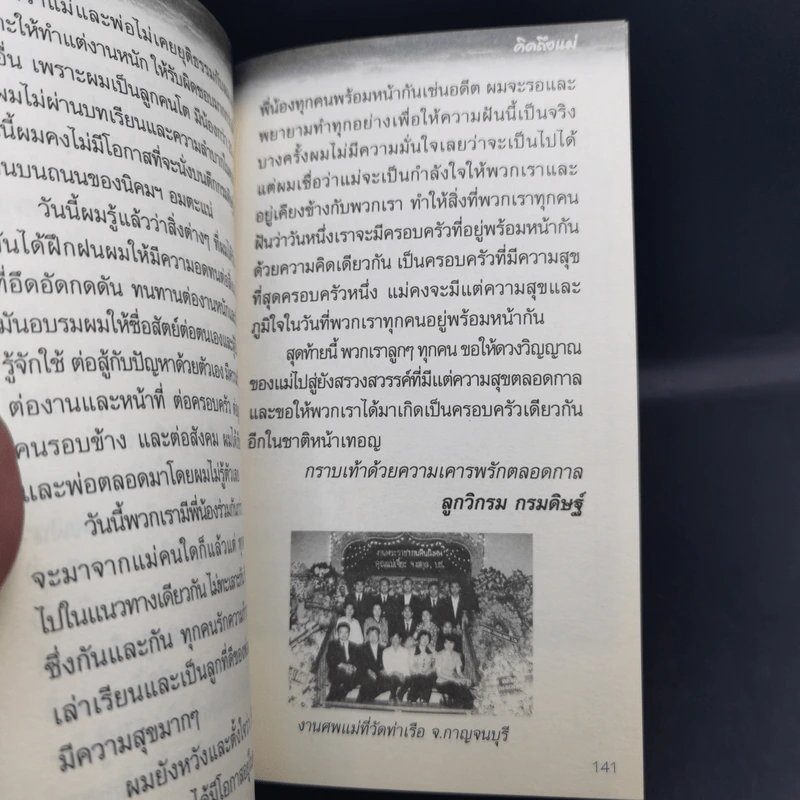 ว่าแม่และพ่อไม่เคยยุติธรรมกับ
ะให้ทำแต่งานหนัก ให้รับผิดชอบ
อื่น เพราะผมเป็นลูกคนโต มีน้อง
ผมไม่ผ่านบทเรียนและความลำบาก
นี้ผมคงไม่มีโอกาสที่จะนั่งบน
นบนถนนของนิคมฯ อมตะแน่
วันนี้ผมรู้แล้วว่าสิ่งต่างๆ ที่แม่
นได้ฝึกฝนผมให้มีความอดทนต่อ
ที่อึดอัดกดดัน ทนทานต่องานหนัก
มันอบรมผมให้ซื่อสัตย์ต่อตนเองและ
รู้จักใช้ ต่อสู้กับปัญหาด้วยตัวเอง มี
ต่องานและหน้าที่ ต่อครอบครัว
คนรอบข้าง และต่อสังคม ผมได้
และพ่อตลอดมาโดยผมไม่รู้ตัวเลย
วันนี้พวกเรามีพี่น้องร่วมกัน
จะมาจากแม่คนใดก็แล้วแต่ ทุก
ไปในแนวทางเดียวกัน ไม่ทะเลาะ
ซึ่งกันและกัน ทุกคนรักความ
เล่าเรียนและเป็นลูกที่ดีของ
มีความสุขมากๆ
ผมยังหวังและตั้งใจว่า
ได้มีโอกาส
คิดถึงแม่
พี่น้องทุกคนพร้อมหน้ากันเช่นอดีต ผมจะรอและ
พยายามทำทุกอย่างเพื่อให้ความฝันนี้เป็นจริง
บางครั้งผมไม่มีความมั่นใจเลยว่าจะเป็นไปได้
แต่ผมเชื่อว่าแม่จะเป็นกำลังใจให้พวกเราและ
อยู่เคียงข้างกับพวกเรา ทำให้สิ่งที่พวกเราทุกคน
ฝันว่าวันหนึ่งเราจะมีครอบครัวที่อยู่พร้อมหน้ากัน
ด้วยความคิดเดียวกัน เป็นครอบครัวที่มีความสุข
ที่สุดครอบครัวหนึ่ง แม่คงจะมีแต่ความสุขและ
ภูมิใจในวันที่พวกเราทุกคนอยู่พร้อมหน้ากัน
สุดท้ายนี้ พวกเราลูกๆ ทุกคน ขอให้ดวงวิญญาณ
ของแม่ไปสู่ยังสรวงสวรรค์ที่มีแต่ความสุขตลอดกาล
และขอให้พวกเราได้มาเกิดเป็นครอบครัวเดียวกัน
อีกในชาติหน้าเทอญ
กราบเท้าด้วยความเคารพรักตลอดกาล
ลูกวิกรม กรมดิษฐ์
งานศพแม่ที่วัดท่าเรือ จ.กาญจนบุรี
141